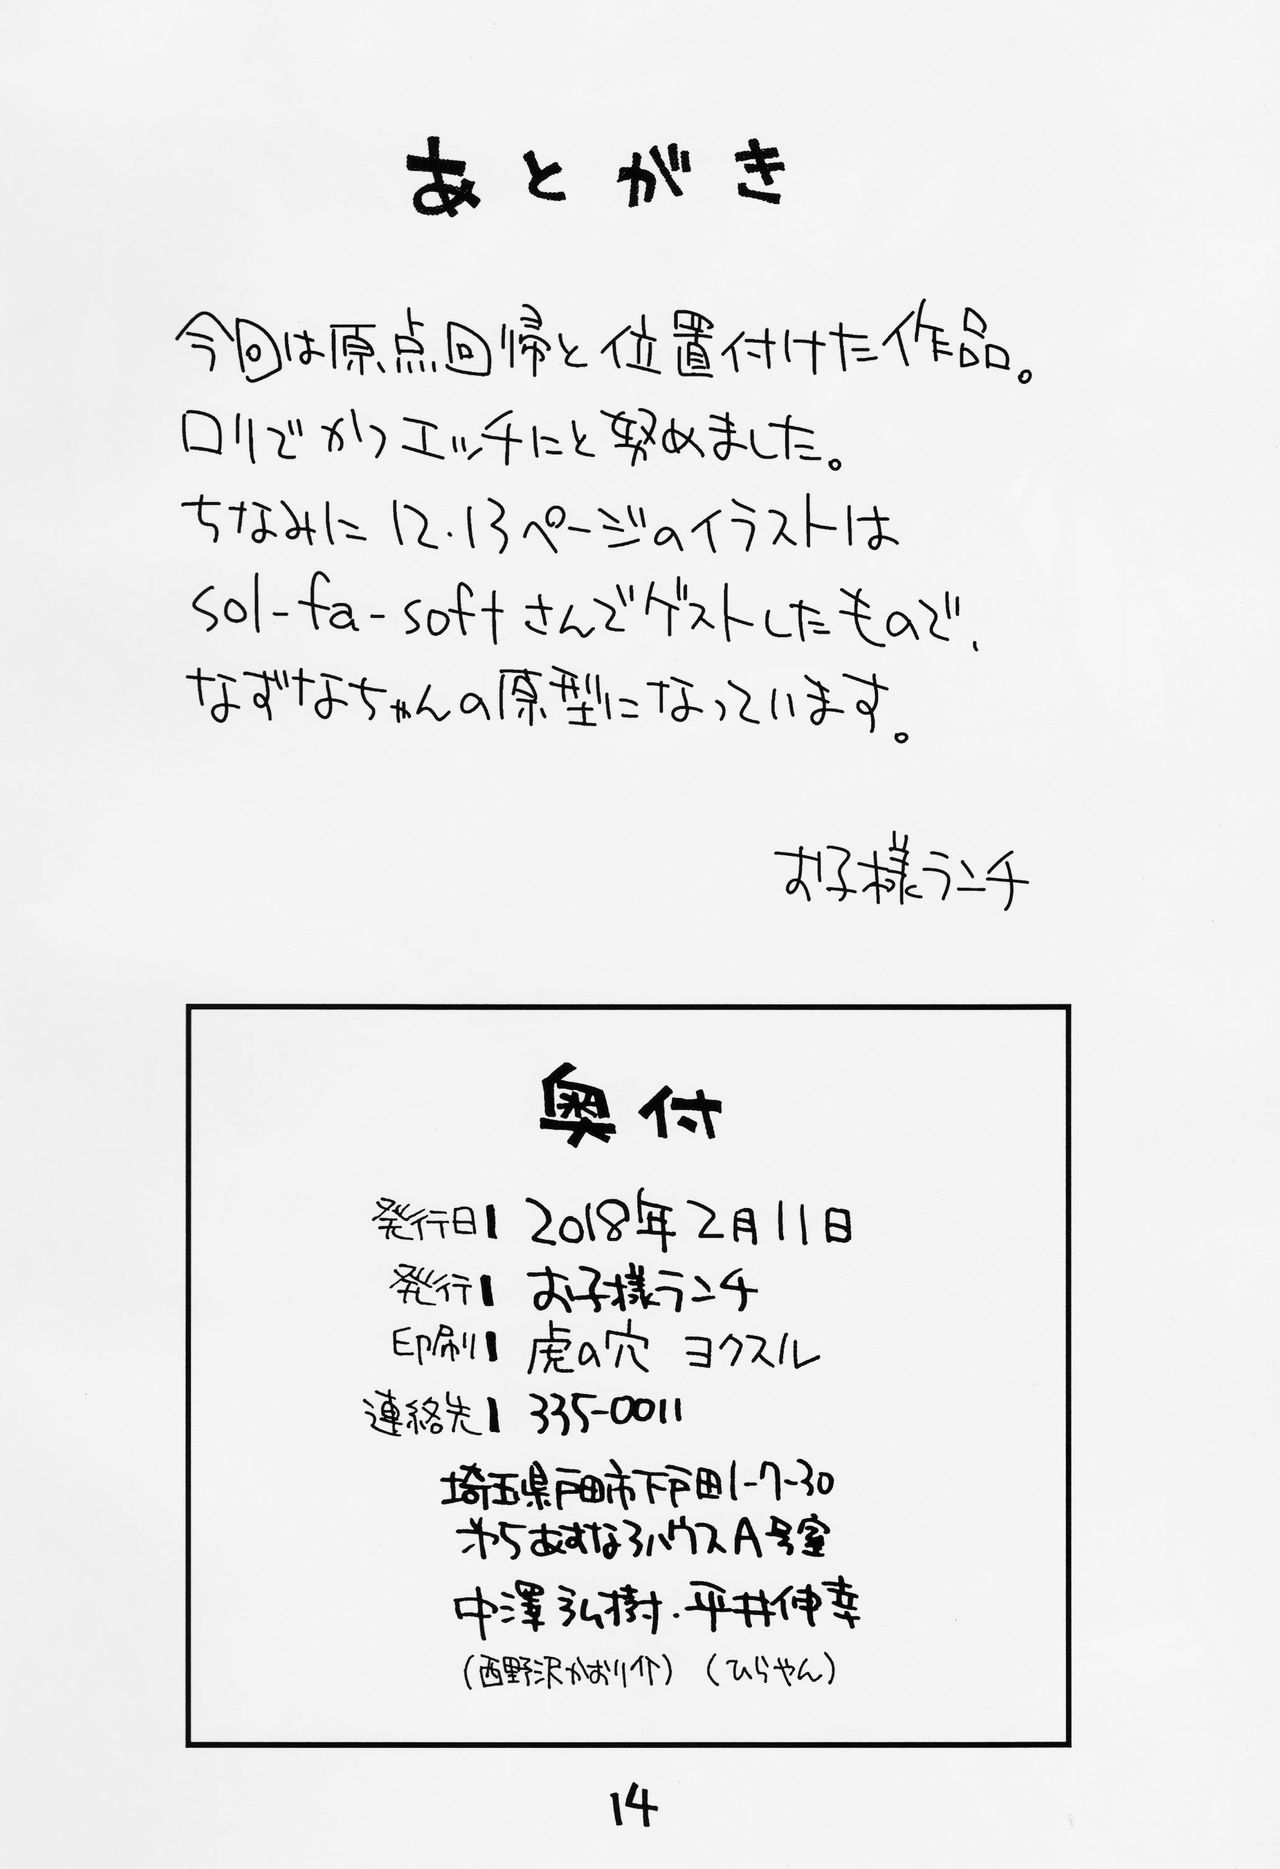 あとがき
今回は原点回帰と位置付けた作品。
ロリでかつエッチにと努めました。
ちなみに12.13ページのイラストは
sol-fa-softさんでゲストしたもので、
なずなちゃんの原型になっています。
お子様ランチ
奥付
発行日 2018年2月11日
発行 お子様ランチ
印刷 虎の穴 ヨクスル
連絡先 335-0011
埼玉県戸田市下戸田1-7-30
第5あすなろハウスA号室
中澤弘樹・平井伸幸
(西野沢かおり介) (ひらやん)
14